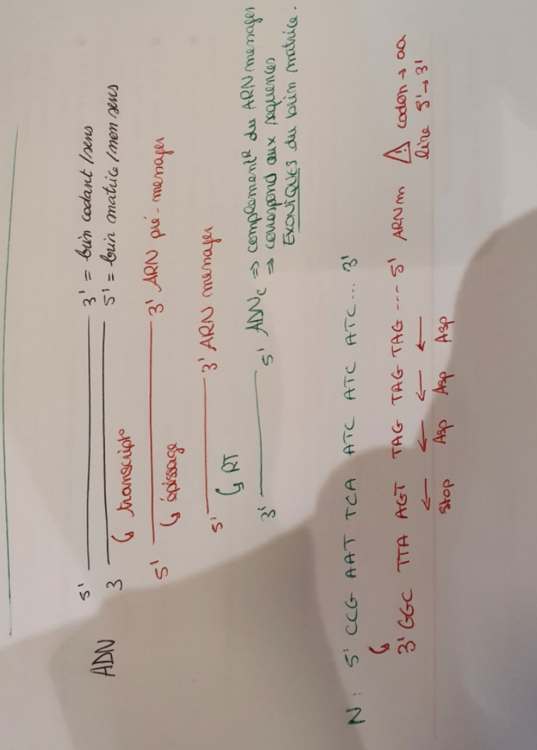 5' 3' = brin codant/sens
ADN 3 5' = brin matrice/non sens
↳ transcript°
5' 3' ARN pré-messager
↳ épissage
5' 3' ARN messager
↳ RT
3' 5' ADNc => complementR du ARN messager
=> correspond aux séquences
EXONIQUES du brin matrice.
N: 5' CCG AAT TCA ATC ATC ATC ... 3'
↳
3' GGC TTA AGT TAG TAG TAG --- 5' ARNm ⚠ codon → aa
← ← ← ← lire 5' → 3'
Stop Asp Asp Asp